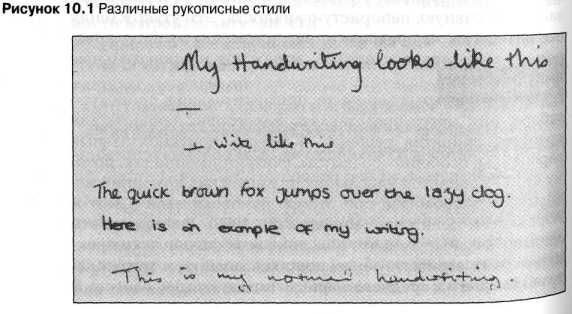 Рисунок 10.1 Различные рукописные стили
My Handwriting looks like this
I write like this
The quick brown fox jumps over the lazy dog.
Here is an example of my writing.
This is my normal handwriting.